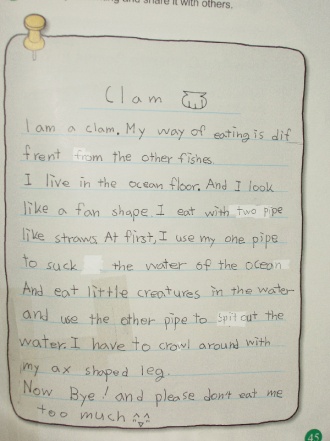 and share it with others.
Clam
I am a clam. My way of eating is dif
frent from the other fishes.
I live in the ocean floor. And I look
like a fan shape I eat with two pipe
like straws. At first, I use my one pipe
to suck the water of the ocean
And eat little creatures in the water
and use the other pipe to spit out the
water. I have to crowl around with
my ax shaped leg.
Now Bye! and please don't eat me
too much ^^
45